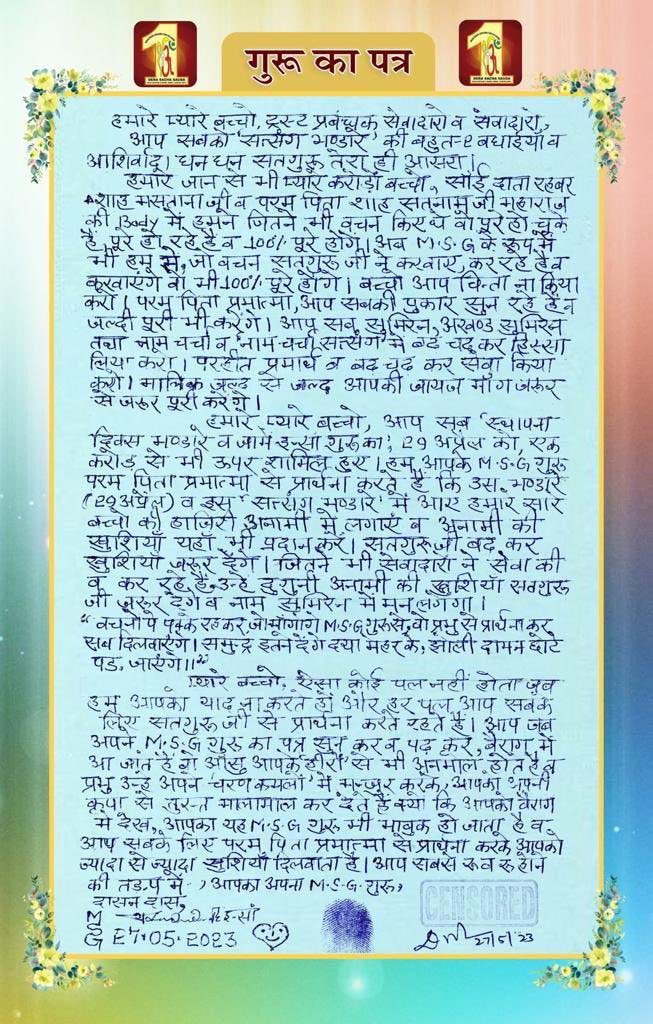 गुरू का पत्र
1
DERA SACHA SAUDA
1
DERA SACHA SAUDA
हमारे प्यारे बच्चो, ट्रस्ट प्रबंधक सेवादारो व सेवादारो,
आप सबको 'सत्संग भण्डारे' की बहुत-२ बधाइयाँ व
आशिर्वाद। धन धन सतगुरू तेरा ही आसरा।
हमारे जान से भी प्यारे करोड़ों बच्चो, साँई दाता रहबर
शाह मस्ताना जी व परम पिता शाह सतनाम जी महाराज
की Body में हमने जितने भी वचन किए थे वो पूरे हो चुके
है, पूरे हो रहे है व 100% पूरे होंगे। अब M.S.G के रूप में
भी हम से, जो बचन सतगुरू जी ने करवाए, कर रहे है व
करवाएंगे वो भी 100% पूरे होंगे। बच्चो आप चिंता ना किया
करो। परम पिता प्रमात्मा, आप सबकी पुकार सुन रहे है व
जल्दी पूरी भी करेंगे। आप सब सुमिरन, अखण्ड सुमिरन
तथा नाम चर्चा व 'नाम चर्चा सत्संग' में बढ़ चढ़ कर हिस्सा
लिया करो। परहीत प्रमार्थ व बढ़ चढ़ कर सेवा किया
करो। मालिक जल्द से जल्द आपकी जायज माँग जरूर
से जरूर पूरी करेंगे।
हमारे प्यारे बच्चो, आप सब 'स्थापना
दिवस भण्डारे व जामे इन्सां गुरू का', 29 अप्रैल को, एक
करोड़ से भी ऊपर शामिल हुए। हम, आपके M.S.G गुरू
परम पिता प्रमात्मा से प्रार्थना करते है कि उस भण्डारे
(29 अप्रैल) व इस 'सत्संग भण्डारे' में आए हमारे सारे
बच्चो की हाजिरी अनामी में लगाएं व अनामी की
खुशियाँ यहाँ भी प्रदान करें। सतगुरू जी बढ़ कर
खुशियाँ जरूर देंगे। जितने भी सेवादारों ने सेवा की
व कर रहे हैं, उन्हे दुगुनी अनामी की खुशियाँ सतगुरू
जी जरूर देंगे व नाम सुमिरन में मन लगेगा।
"वचनों पे पक्के रहकर, जो माँगोगे M.S.G गुरू से, वो प्रभु से प्रार्थना कर
सब दिलवाएंगे। समुन्द्र इतने देंगे दया महर के, झोली दामन छोटे
पड़ जाएंगे।।"
प्यारे बच्चो, ऐसा कोई पल नहीं होता जब
हम आपको याद ना करते हों और हर पल आप सबके
लिए सतगुरू जी से प्रार्थना करते रहते हैं। आप जब
अपने M.S.G गुरू का पत्र सुन कर व पढ़ कर, वैराग में
आ जाते है, ये आंसु आपके हीरों से भी अनमोल होते है व
प्रभु उन्हे अपने 'चरण कमलों' में मन्जूर करके, आपको अपनी
कृपा से तुरन्त मालामाल कर देते है क्यों कि आपको वैराग
में देख, आपका यह M.S.G गुरू भी भावुक हो जाता है व
आप सबके लिए परम पिता प्रमात्मा से प्रार्थना करके आपको
ज्यादा से ज्यादा खुशियाँ दिलवाता है। आप सबसे रूबरू होने
की तड़प में -, आपका अपना M.S.G गुरू,
दासन दास,
M
S
G 27.05.2023
CENSORED